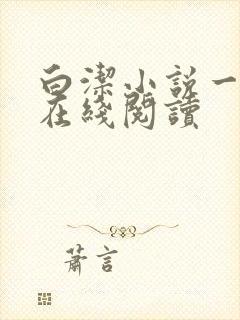 白潔小說一
在綫閱讀
蕭言